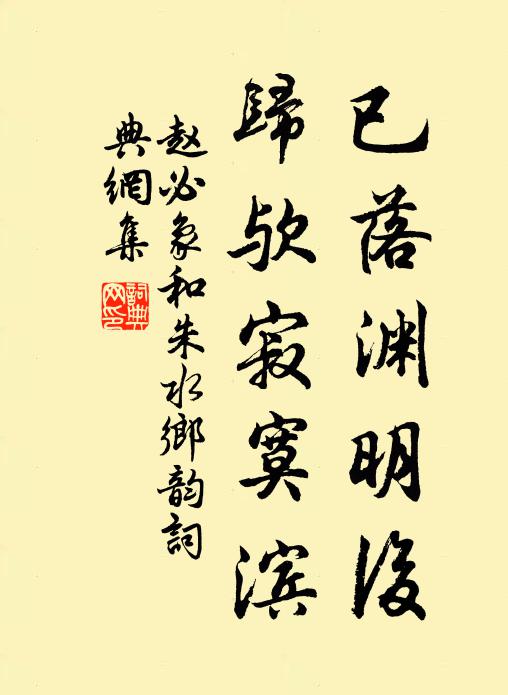 已落渊明后
歸欤寂寞滨
赵必象和朱水鄉韵詞
典網集
詞典网印